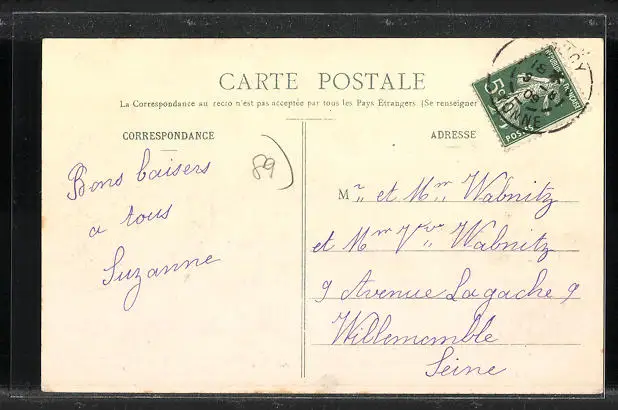 CARTE POSTALE
La Correspondance au recto n'est pas acceptée par tous les Pays Etrangers (Se renseigner
CORRESPONDANCE
Bons baisers
a tous
Suzanne
89
ADRESSE
Mr et Mme Wabnitz
et Mme Vve Wabnitz
9 Avenue Lagache 9
Willemomble
Seine
5c
POSTES
YONNE